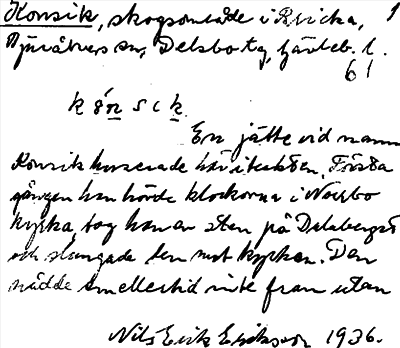 Konsik, skogsområde i Bricka, 1
Bjuråkers sn, Delsbo tg, Gävleb. l.
61
k ó n s i k.
En jätte vid namn
Konsik huserade här i trakten. Första
gången han hörde klockorna i Norrbo
kyrka, tog han en sten på Delsberget
och slungade den mot kyrkan. Den
nådde emellertid inte fram utan
Nils Erik Eriksson 1936.